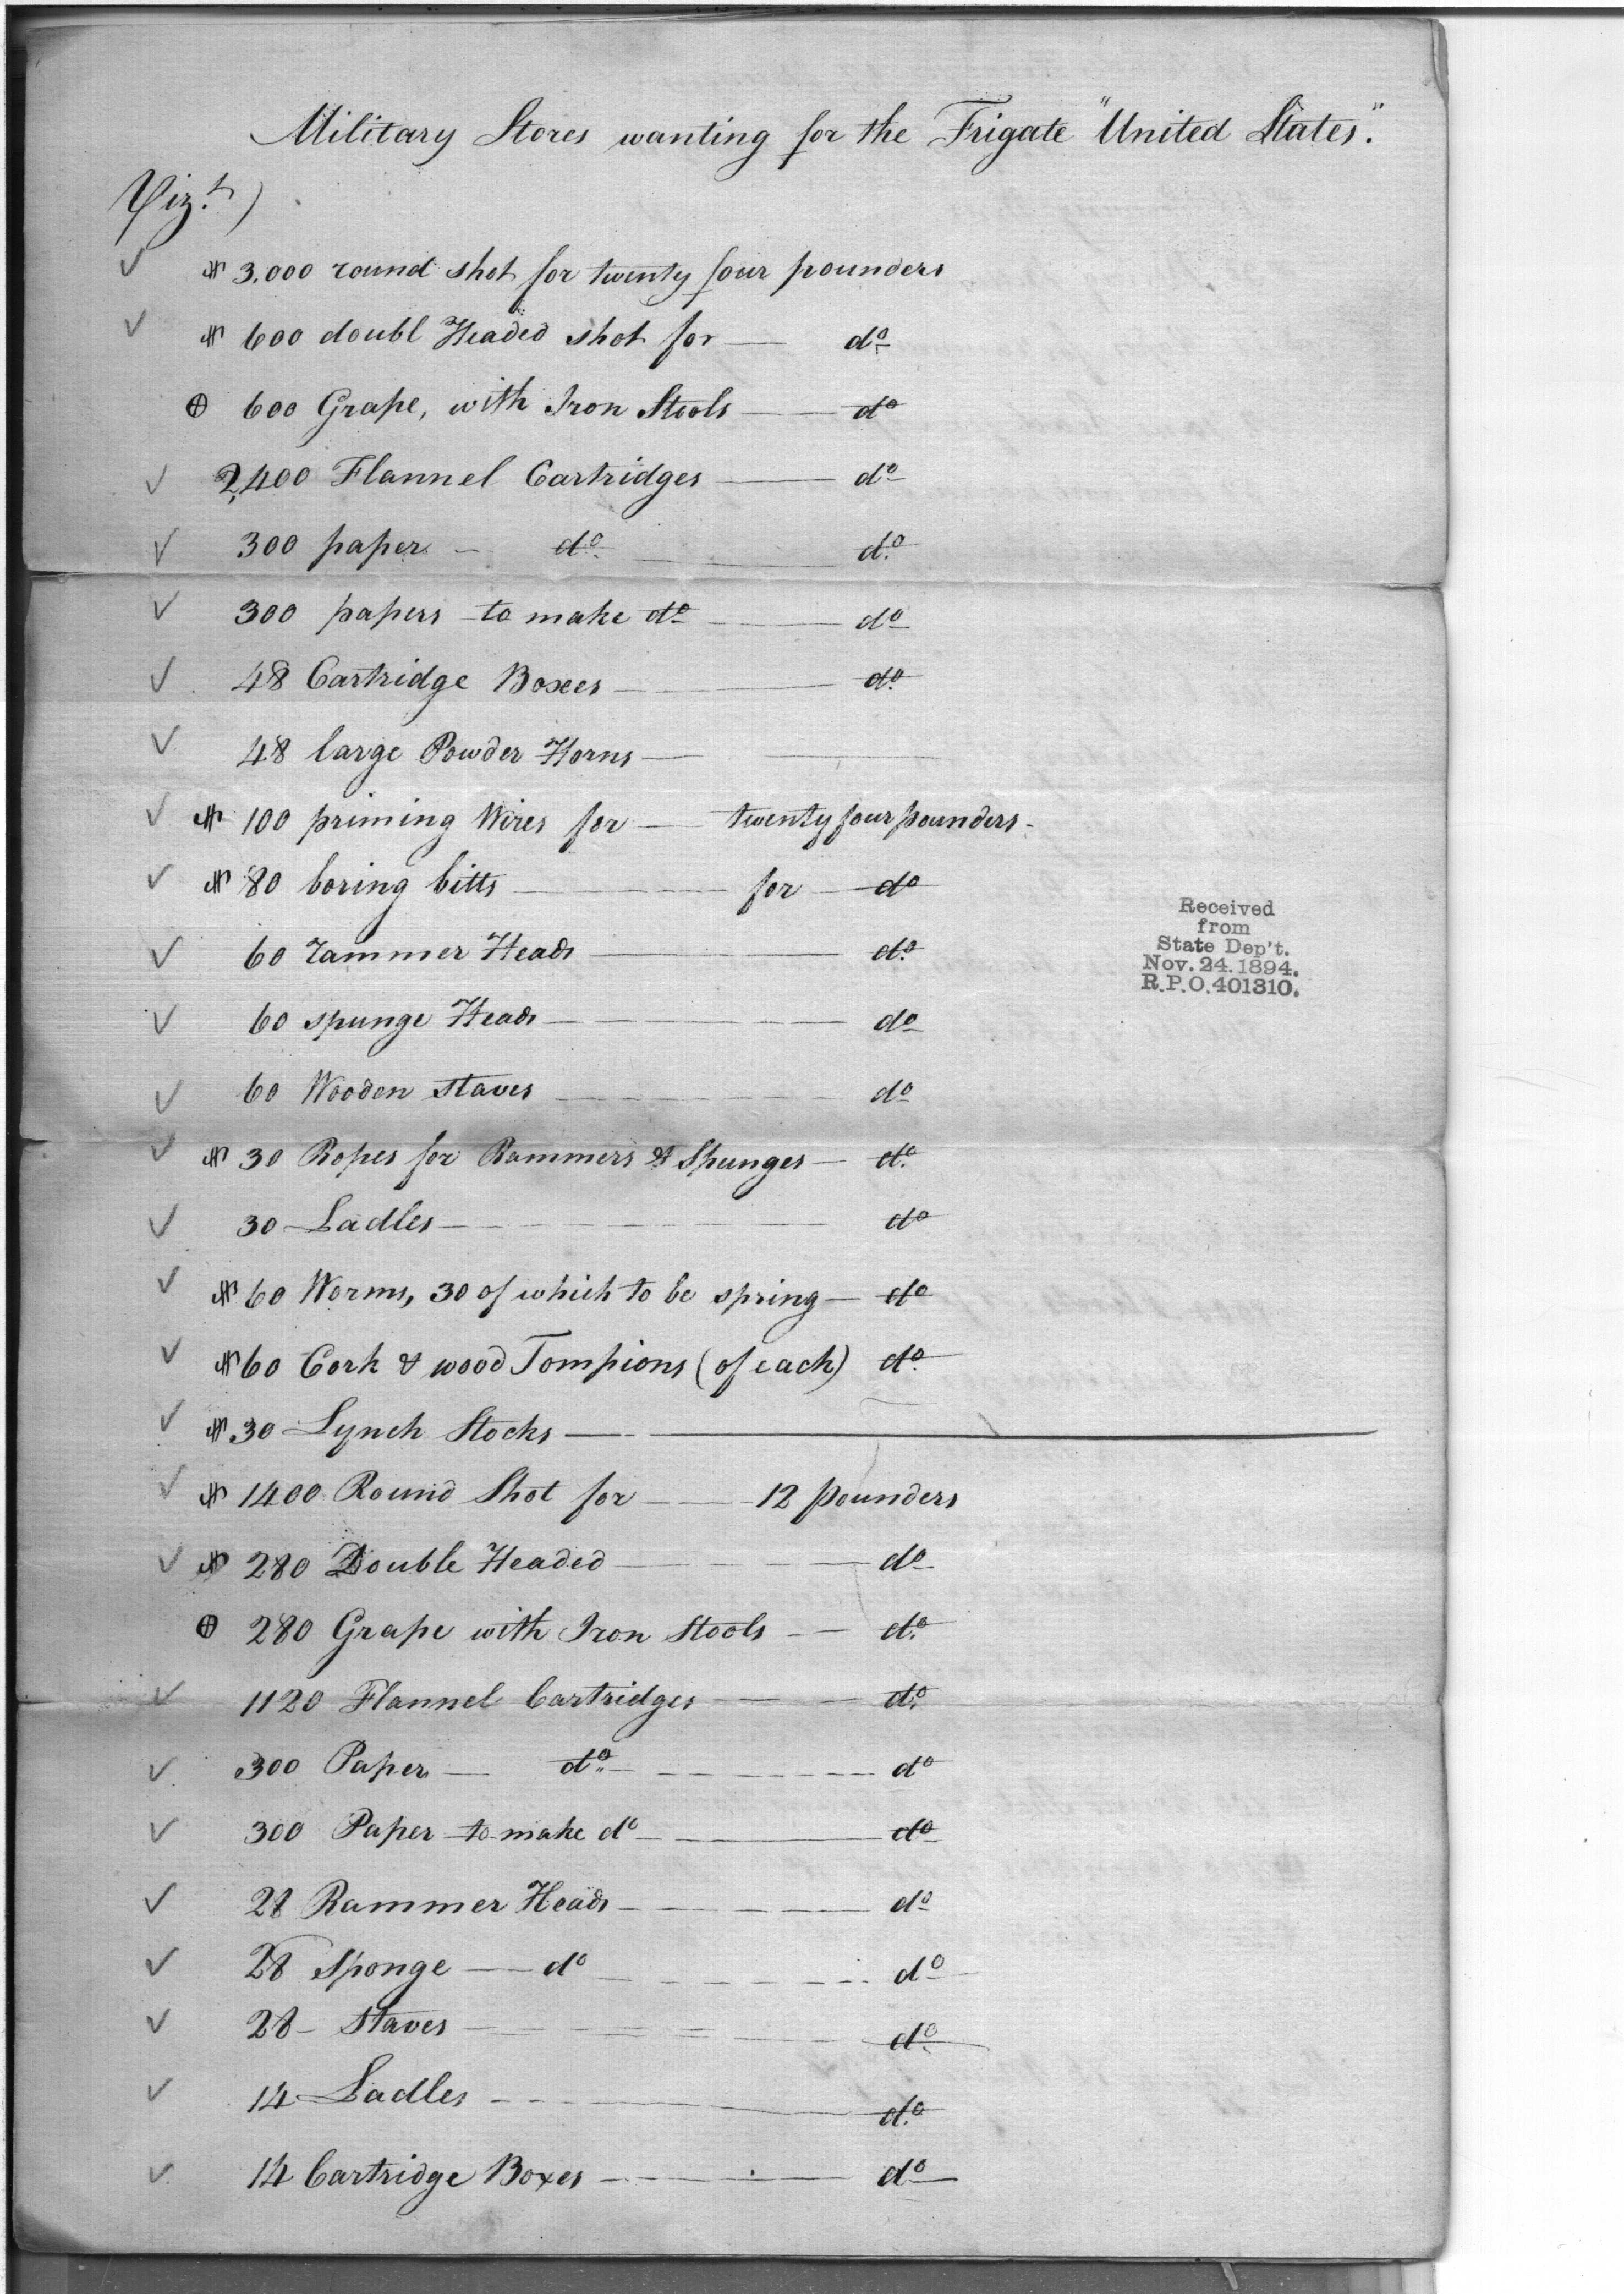 Military Stores wanting for the Frigate "United States".
Vizt)
✓ # 3.000 round shot for twenty four pounders
✓ # 600 doubl Headed shot for — do
⊕ 600 Grape, with Iron Stools — do
✓ 2,400 Flannel Cartridges — do
✓ 300 paper — do — do
✓ 300 papers to make do — do
✓ 48 Cartridge Boxes — do
✓ 48 large Powder Horns —
✓ # 100 priming Wires for — twenty four pounders -
✓ # 80 boring bitts — for — do
✓ 60 rammer Heads — do
Received
from
State Dep't.
Nov. 24. 1894.
R.P.O. 401310.
✓ 60 spunge Heads — do
✓ 60 Wooden staves — do
✓ # 30 Ropes for Rammers & Spunges — do
✓ 30 Ladles — do
✓ # 60 Worms, 30 of which to be spring — do
✓ # 60 Cork & wood Tompions (of each) do
✓ # 30 Lynch Stocks —
✓ # 1400 Round Shot for — 12 pounders
✓ # 280 Double Headed — do
⊕ 280 Grape with Iron stools — do
✓ 1120 Flannel Cartridges — do
✓ 300 Paper — do — do
✓ 300 Paper to make do — do
✓ 28 Rammer Heads — do
✓ 28 Sponge — do — do
✓ 28 – Staves — do
✓ 14 Ladles — do
✓ 14 Cartridge Boxes — do